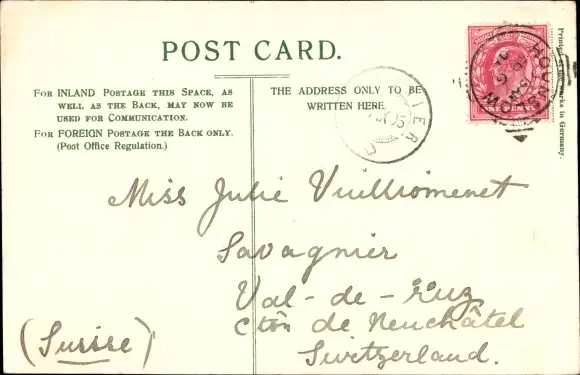 POST CARD.
FOR INLAND POSTAGE THIS SPACE, AS
WELL AS THE BACK, MAY NOW BE
USED FOR COMMUNICATION.
FOR FOREIGN POSTAGE THE BACK ONLY.
(Post Office Regulation.)
THE ADDRESS ONLY TO BE
WRITTEN HERE.
HOUNSLOW
Miss Julie Vuilliomenet
Savagnier
Val-de-Ruz
Cton de Neuchâtel
Switzerland.
(Suisse)
in Germany.